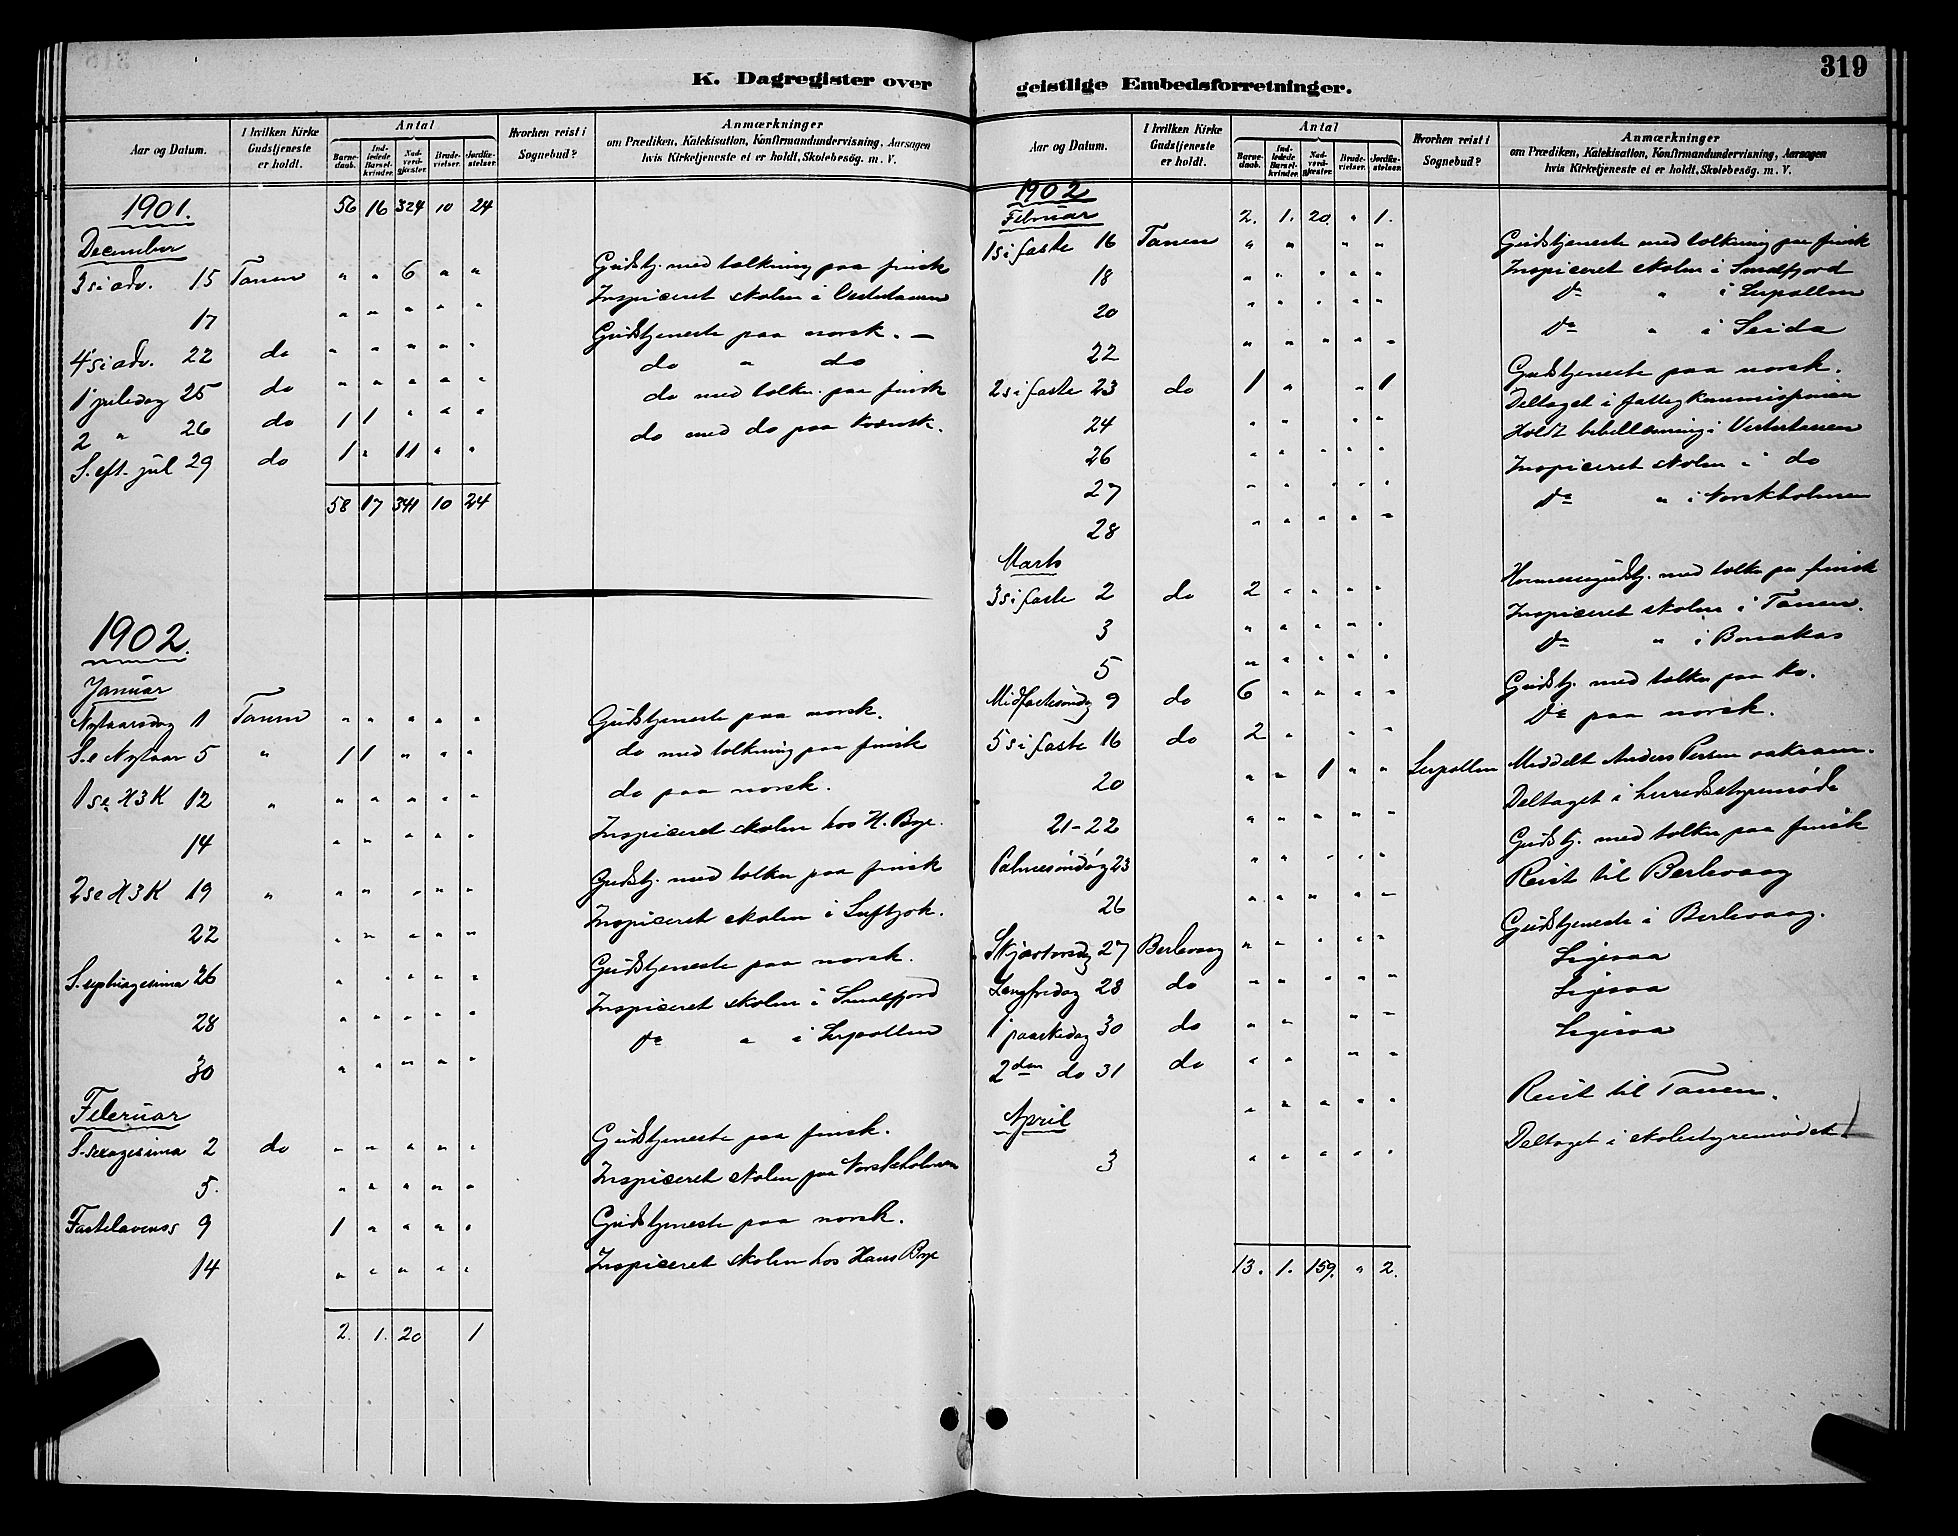 319
K. Dagregister over geistlige Embedsforretninger.
Aar og Datum. I hvilken Kirke Gudstjeneste er holdt. Antal Barnedaab. Indledede Barselkvinder. Nadverdgjæster. Brudevielser. Jordfæstelser. Hvorhen reist i Sognebud? Anmærkninger om Prædiken, Katekisation, Konfirmandundervisning, Aarsagen hvis Kirketjeneste ei er holdt, Skolebesög. m. V.
1901. 56 16 324 10 24
December
3 s i adv. 15 Tanen " " 6 " " Gudstj. med tolkning paa finsk
17 " " " " " Inspiceret skolen i Vestertanen
4 s i adv. 22 do " " " " " Gudstjeneste paa norsk. —
1 juledag 25 do " " " " " do " do
2 " 26 do 1 1 " " " do med tolkn. paa finsk
S. eft. jul 29 do 1 " 11 " " do med do paa kvænsk.
58 17 341 10 24
1902.
Januar
Nytaarsdag 1 Tanen " " " " " Gudstjeneste paa norsk.
S. e Nytaar 5 " 1 1 " " " do med tolkning paa finsk
1 s e H3K 12 " " " " " " do paa norsk.
14 " " " " " Inspiceret skolen hos H. Bye.
2 s e H3K 19 " " " " " " Gudstj. med tolken paa finsk
22 " " " " " Inspiceret skolen i Luftjok.
S. septuagesima 26 " " " " " Gudstjeneste paa norsk.
28 " " " " " Inspiceret skolen i Smalfjord
30 " " " " " Do " i Lerpollen
Februar
S. sexagesima 2 do " " " " " Gudstjeneste paa finsk.
5. " " " " " Inspiceret skolen paa Norskholmen
Fastelavenss 9 1 " " " " Gudstjeneste paa norsk.
14 " " " " " Inspiceret skolen hos Hans Bye
2. 1. 20 1
Aar og Datum. I hvilken Kirke Gudstjeneste er holdt. Antal Barnedaab. Indledede Barselkvinder. Nadverdgjæster. Brudevielser. Jordfæstelser. Hvorhen reist i Sognebud? Anmærkninger om Prædiken, Katekisation, Konfirmandundervisning, Aarsagen hvis Kirketjeneste ei er holdt, Skolebesög. m. V.
1902
Februar 2. 1. 20. " 1.
1 s i faste 16 Tanen " " " " Gudstjeneste med tolkning paa finsk
18 " " " " " Inspiceret skolen i Smalfjord
20 " " " " " Do " i Lerpollen
22 " " " " " Do " i Seida
2 s i faste 23 do 1 " " 1 Gudstjeneste paa norsk.
24 " " " " Deltaget i fattigkommisjonen
26 " " " " " Holdt bibellæsning i Vestertanen
27 " " " " " Inspiceret skolen i do
28 " " " " " Do " i Norskholmen
Marts
3 s i faste 2 do 2 " " " " Høimessegudstj. med tolken pa finsk
3 " " " " " Inspiceret skolen i Tanen.
5 " " " " " Do " i Bonakas
Midfastesöndag 9 do 6 " " " " Gudstj. med tolken paa kv.
5 s i faste 16 do 2 " " " Do paa norsk.
20 " " 1 " " Lerpollen Meddelt Anders Persen sakram.
21-22 " " " " " Deltaget i herredsstyremöde
Palmesöndag 23 " " " " " Gudstj. med tolken paa finsk
26 " " " " " Reist til Berlevaag
Skjærtorsdag 27 Berlevaag " " " " " Gudstjeneste i Berlevaag.
Langfredag 28 do " " " " " Ligesaa
1 paaskedag 30 do " " " " Ligesaa
2den do 31 do " " " " Ligesaa
April " " " " " Reist til Tanen.
3 " " " " " Deltaget i skolestyremödet
13. 1. 159. " 2.